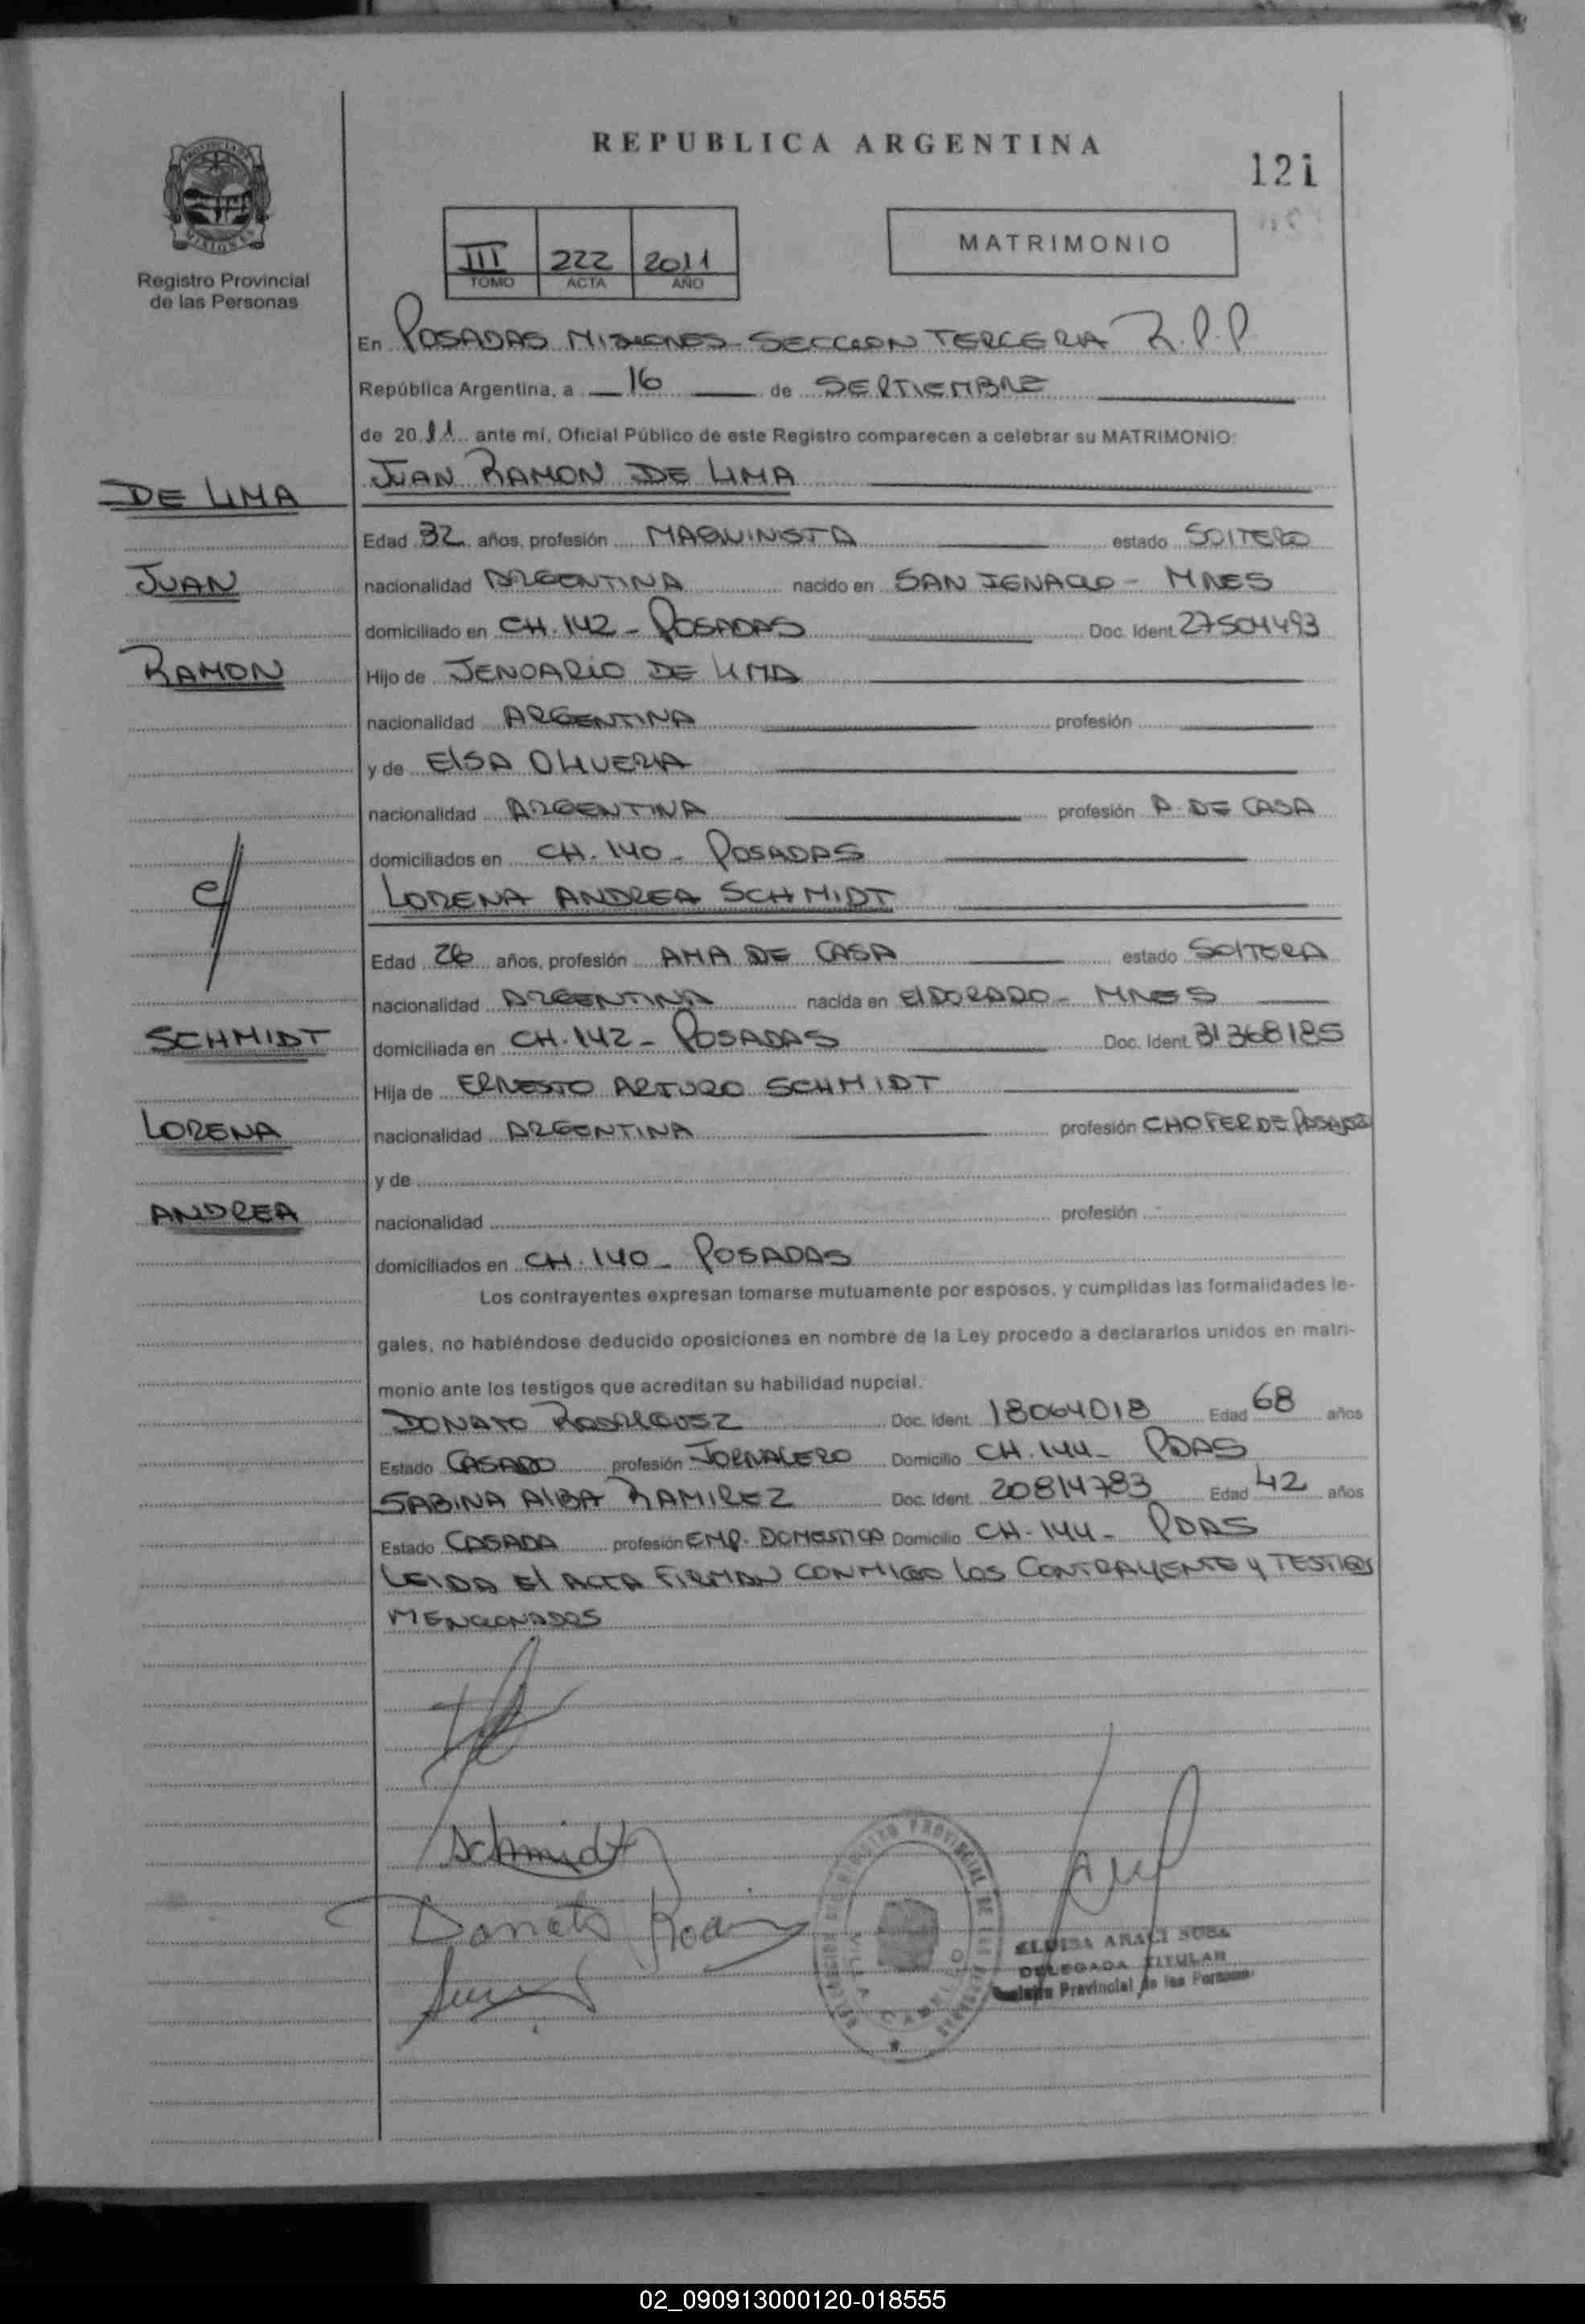 REPUBLICA ARGENTINA
121
Registro Provincial
de las Personas
III 222 2011
TOMO ACTA AÑO
MATRIMONIO
En POSADAS MISIONES - SECCION TERCERA R.P.P
República Argentina, a 16 de SEPTIEMBRE
de 2011 ante mí, Oficial Público de este Registro comparecen a celebrar su MATRIMONIO:
DE LIMA
JUAN RAMON DE LIMA
Edad 32 años, profesión MAQUINISTA estado SOLTERO
JUAN
nacionalidad ARGENTINA nacido en SAN IGNACIO - MNES
domiciliado en CH. 142 - POSADAS Doc. Ident. 27504493
RAMON
Hijo de JENOARIO DE LIMA
nacionalidad ARGENTINA profesión
y de ELSA OLIVERIA
nacionalidad ARGENTINA profesión A. DE CASA
domiciliados en CH. 140 - POSADAS
c/
LORENA ANDREA SCHMIDT
Edad 26 años, profesión AMA DE CASA estado SOLTERA
nacionalidad ARGENTINA nacida en ELDORADO - MNES
SCHMIDT
domiciliada en CH. 142 - POSADAS Doc. Ident. 31368185
Hija de ERNESTO ARTURO SCHMIDT
LORENA
nacionalidad ARGENTINA profesión CHOFER DE
y de
ANDREA
nacionalidad profesión
domiciliados en CH. 140 - POSADAS
Los contrayentes expresan tomarse mutuamente por esposos, y cumplidas las formalidades le-
gales, no habiéndose deducido oposiciones en nombre de la Ley procedo a declararlos unidos en matri-
monio ante los testigos que acreditan su habilidad nupcial.
DONATO RODRIGUEZ Doc. Ident. 18064018 Edad 68 años
Estado CASADO profesión JORNALERO Domicilio CH. 144 - PDAS
SABINA ALBA RAMIREZ Doc. Ident. 20814783 Edad 42 años
Estado CASADA profesión EMP. DOMESTICA Domicilio CH. 144 - PDAS
LEIDA EL ACTA FIRMAN CONMIGO LOS CONTRAYENTE Y TESTIGOS
MENCIONADOS
Schmidt
Donato
ELOISA ARALI SOSA
DELEGADA TITULAR
Registro Provincial de las Personas
02_090913000120-018555